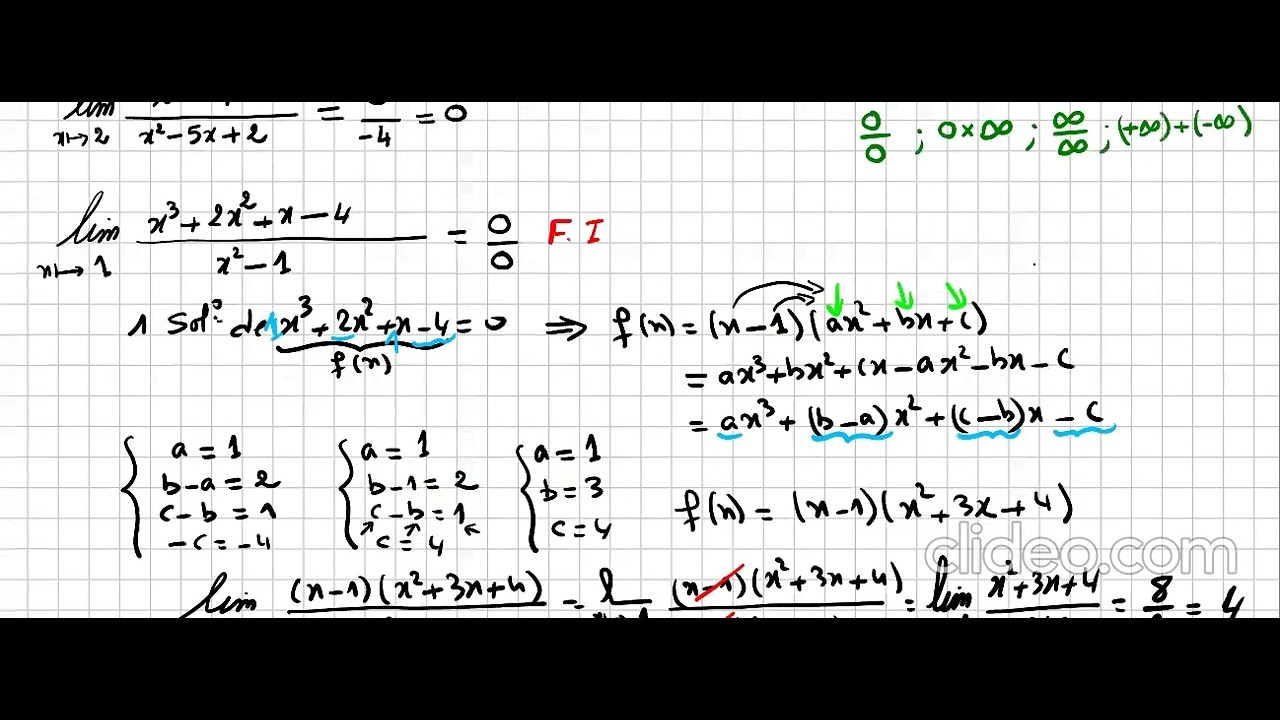 lim x→2 / x² − 5x + 2 = / −4 = 0
0/0 ; 0×∞ ; ∞/∞ ; (+∞)+(−∞)
lim x→1 x³ + 2x² + x − 4 / x² − 1 = 0/0 F.I
1 Sol° de 1x³ + 2x² + x − 4 = 0 ⇒ f(x) = (x − 1)(ax² + bx + c)
f(x)
= ax³ + bx² + cx − ax² − bx − c
= ax³ + (b − a)x² + (c − b)x − c
{ a = 1 { a = 1 { a = 1
b − a = 2 b − 1 = 2 b = 3
c − b = 1 c − b = 1 c = 4
−c = −4 c = 4
f(x) = (x − 1)(x² + 3x + 4)
clideo.com
lim (x − 1)(x² + 3x + 4) = (x − 1)(x² + 3x + 4) = lim x² + 3x + 4 = 8 = 4